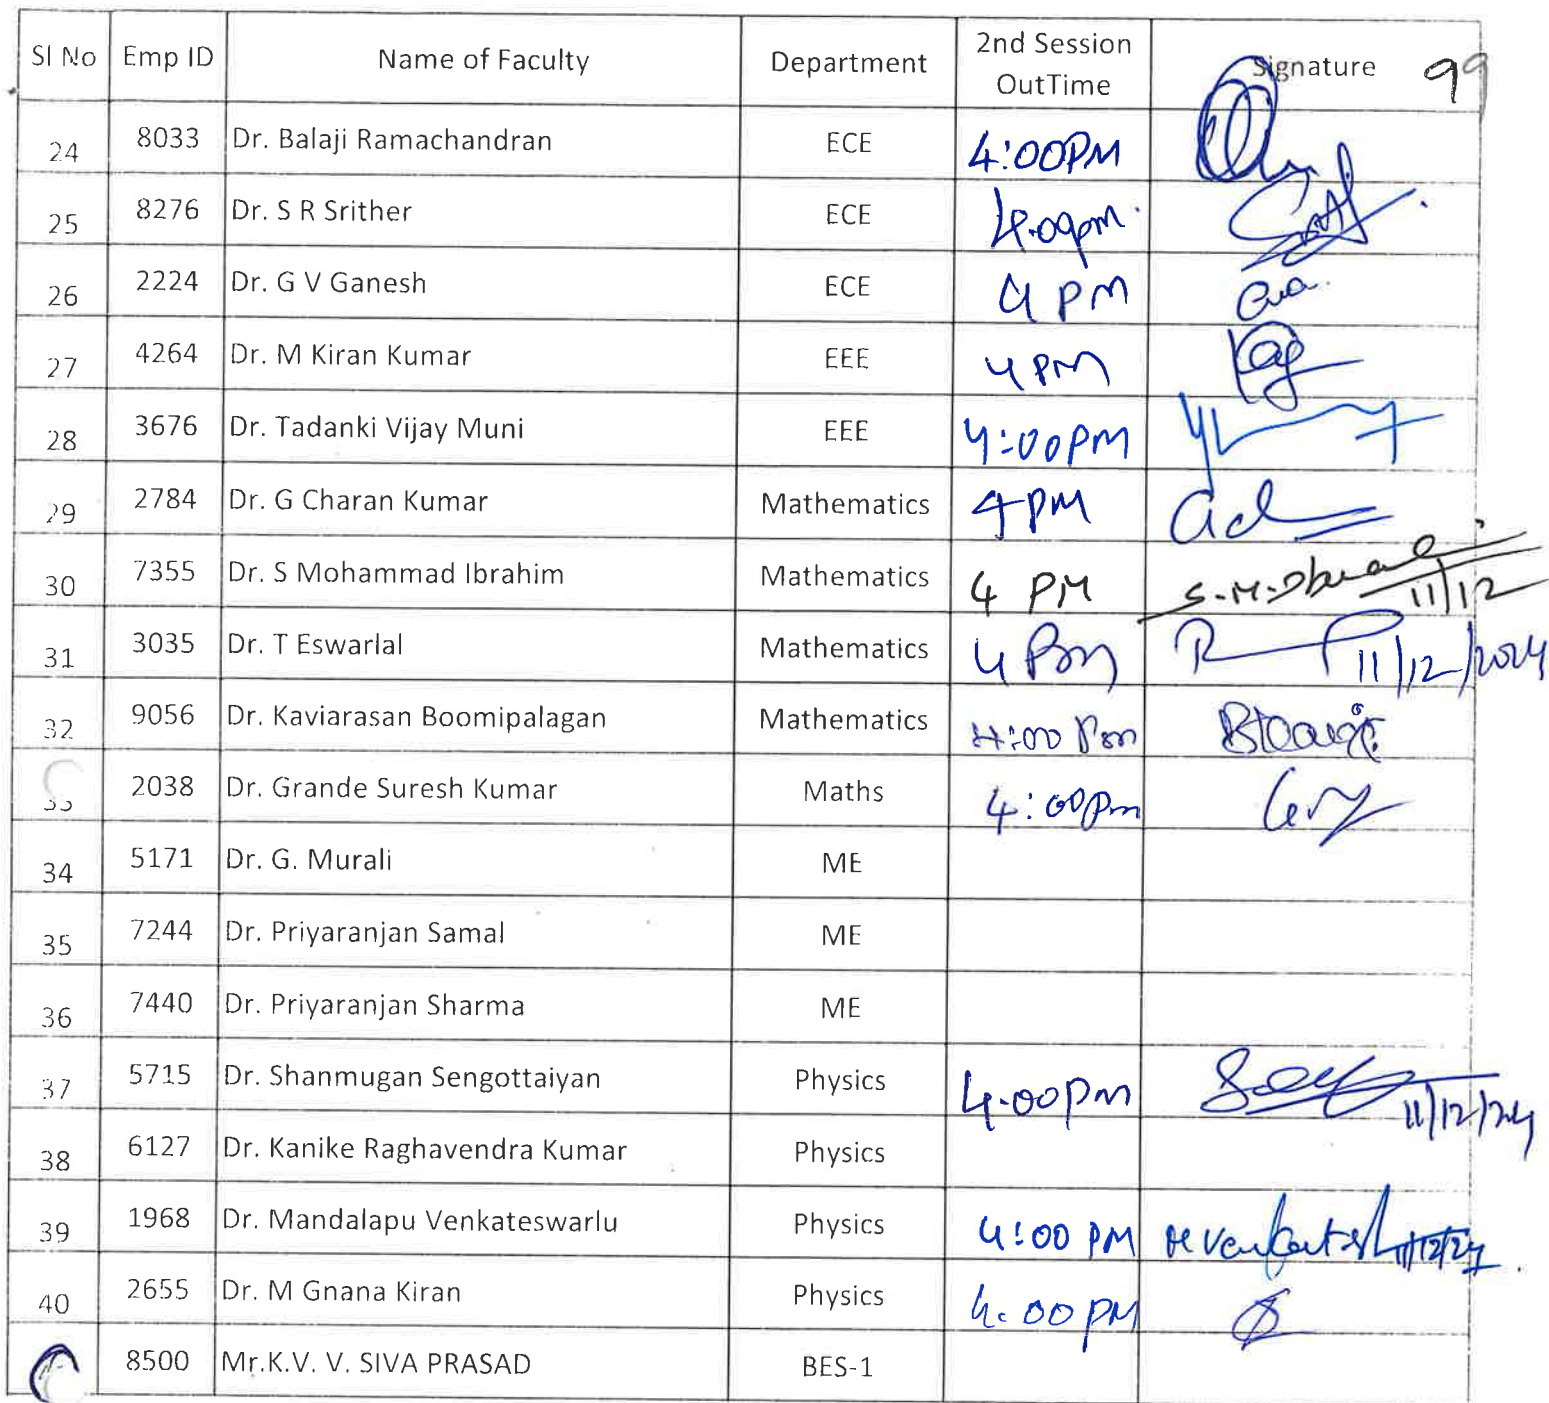 Sl No Emp ID Name of Faculty Department 2nd Session OutTime Signature 99
24 8033 Dr. Balaji Ramachandran ECE 4:00PM
25 8276 Dr. S R Srither ECE 4.00pm.
26 2224 Dr. G V Ganesh ECE 4 PM
27 4264 Dr. M Kiran Kumar EEE 4 PM
28 3676 Dr. Tadanki Vijay Muni EEE 4:00PM
29 2784 Dr. G Charan Kumar Mathematics 4 PM
30 7355 Dr. S Mohammad Ibrahim Mathematics 4 PM 11/12
31 3035 Dr. T Eswarlal Mathematics 4 Pm 11/12/2024
32 9056 Dr. Kaviarasan Boomipalagan Mathematics 4:00 Pm
33 2038 Dr. Grande Suresh Kumar Maths 4:00pm
34 5171 Dr. G. Murali ME
35 7244 Dr. Priyaranjan Samal ME
36 7440 Dr. Priyaranjan Sharma ME
37 5715 Dr. Shanmugan Sengottaiyan Physics 4.00pm 11/12/24
38 6127 Dr. Kanike Raghavendra Kumar Physics
39 1968 Dr. Mandalapu Venkateswarlu Physics 4:00 PM 11/12/24
40 2655 Dr. M Gnana Kiran Physics 4.00 PM
8500 Mr.K.V. V. SIVA PRASAD BES-1